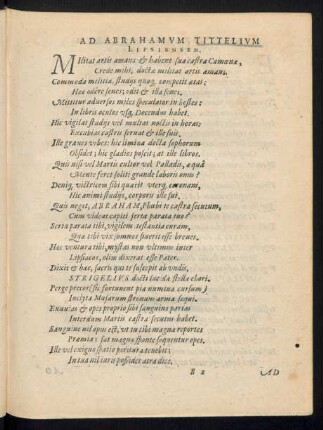 AD ABRAHAMVM TITTELIVM
LIPSIENSEM.
MIlitat artis amans & habent sua castra Camœnæ,
Crede mihi, docta militat artis amans.
Commoda militia, studijs quoq; competit ætas;
Hæc odere senes; odit & illa senes.
Mittitur adversos miles speculator in hostes:
In libris oculos usq; Decundus habet.
Hic vigilat studijs vel multas noctis in horas:
Excubias castris servat & ille suis.
Ille graves urbes: hic limina docta sophorum
Obsidet; hic gladios poscit; at ille libros.
Quis nisi vel Martis cultor vel Palladis, æquâ
Mente feret soliti grande laboris onus?
Deniq; victricem sibi quærit uterq; coronam,
Hic animi studijs, corporis ille sui.
Quis neget, ABRAHAM, Phœbi te castra secutum,
Cum videat capiti serta parata tuo?
Serta parata tibi, vigilem testantia curam,
Qua tibi vix somnos fuerit esse breves.
Hec ventura tibi, mystas non ultimus inter
Lipsiacos, olim dixerat esse Pater.
Dixit & hæc, sacris quis te suscepit ab undis,
STRIGELIUS docti lucida stella chori.
Perge precor (sic fortunent pia numina cursum)
Incepta Musarum strenuus arma sequi.
Exuvias & opes proprio sibi sanguine parias
Interdum Martis castra secutus habet.
Sanguine nil opus est, ut tu tibi magna reportes
Præmia: sat magna sponte sequentur opes.
Ille vel exigua spatio peritura tenebit;
In tua nil juris posside atra dies.
B 2 AD